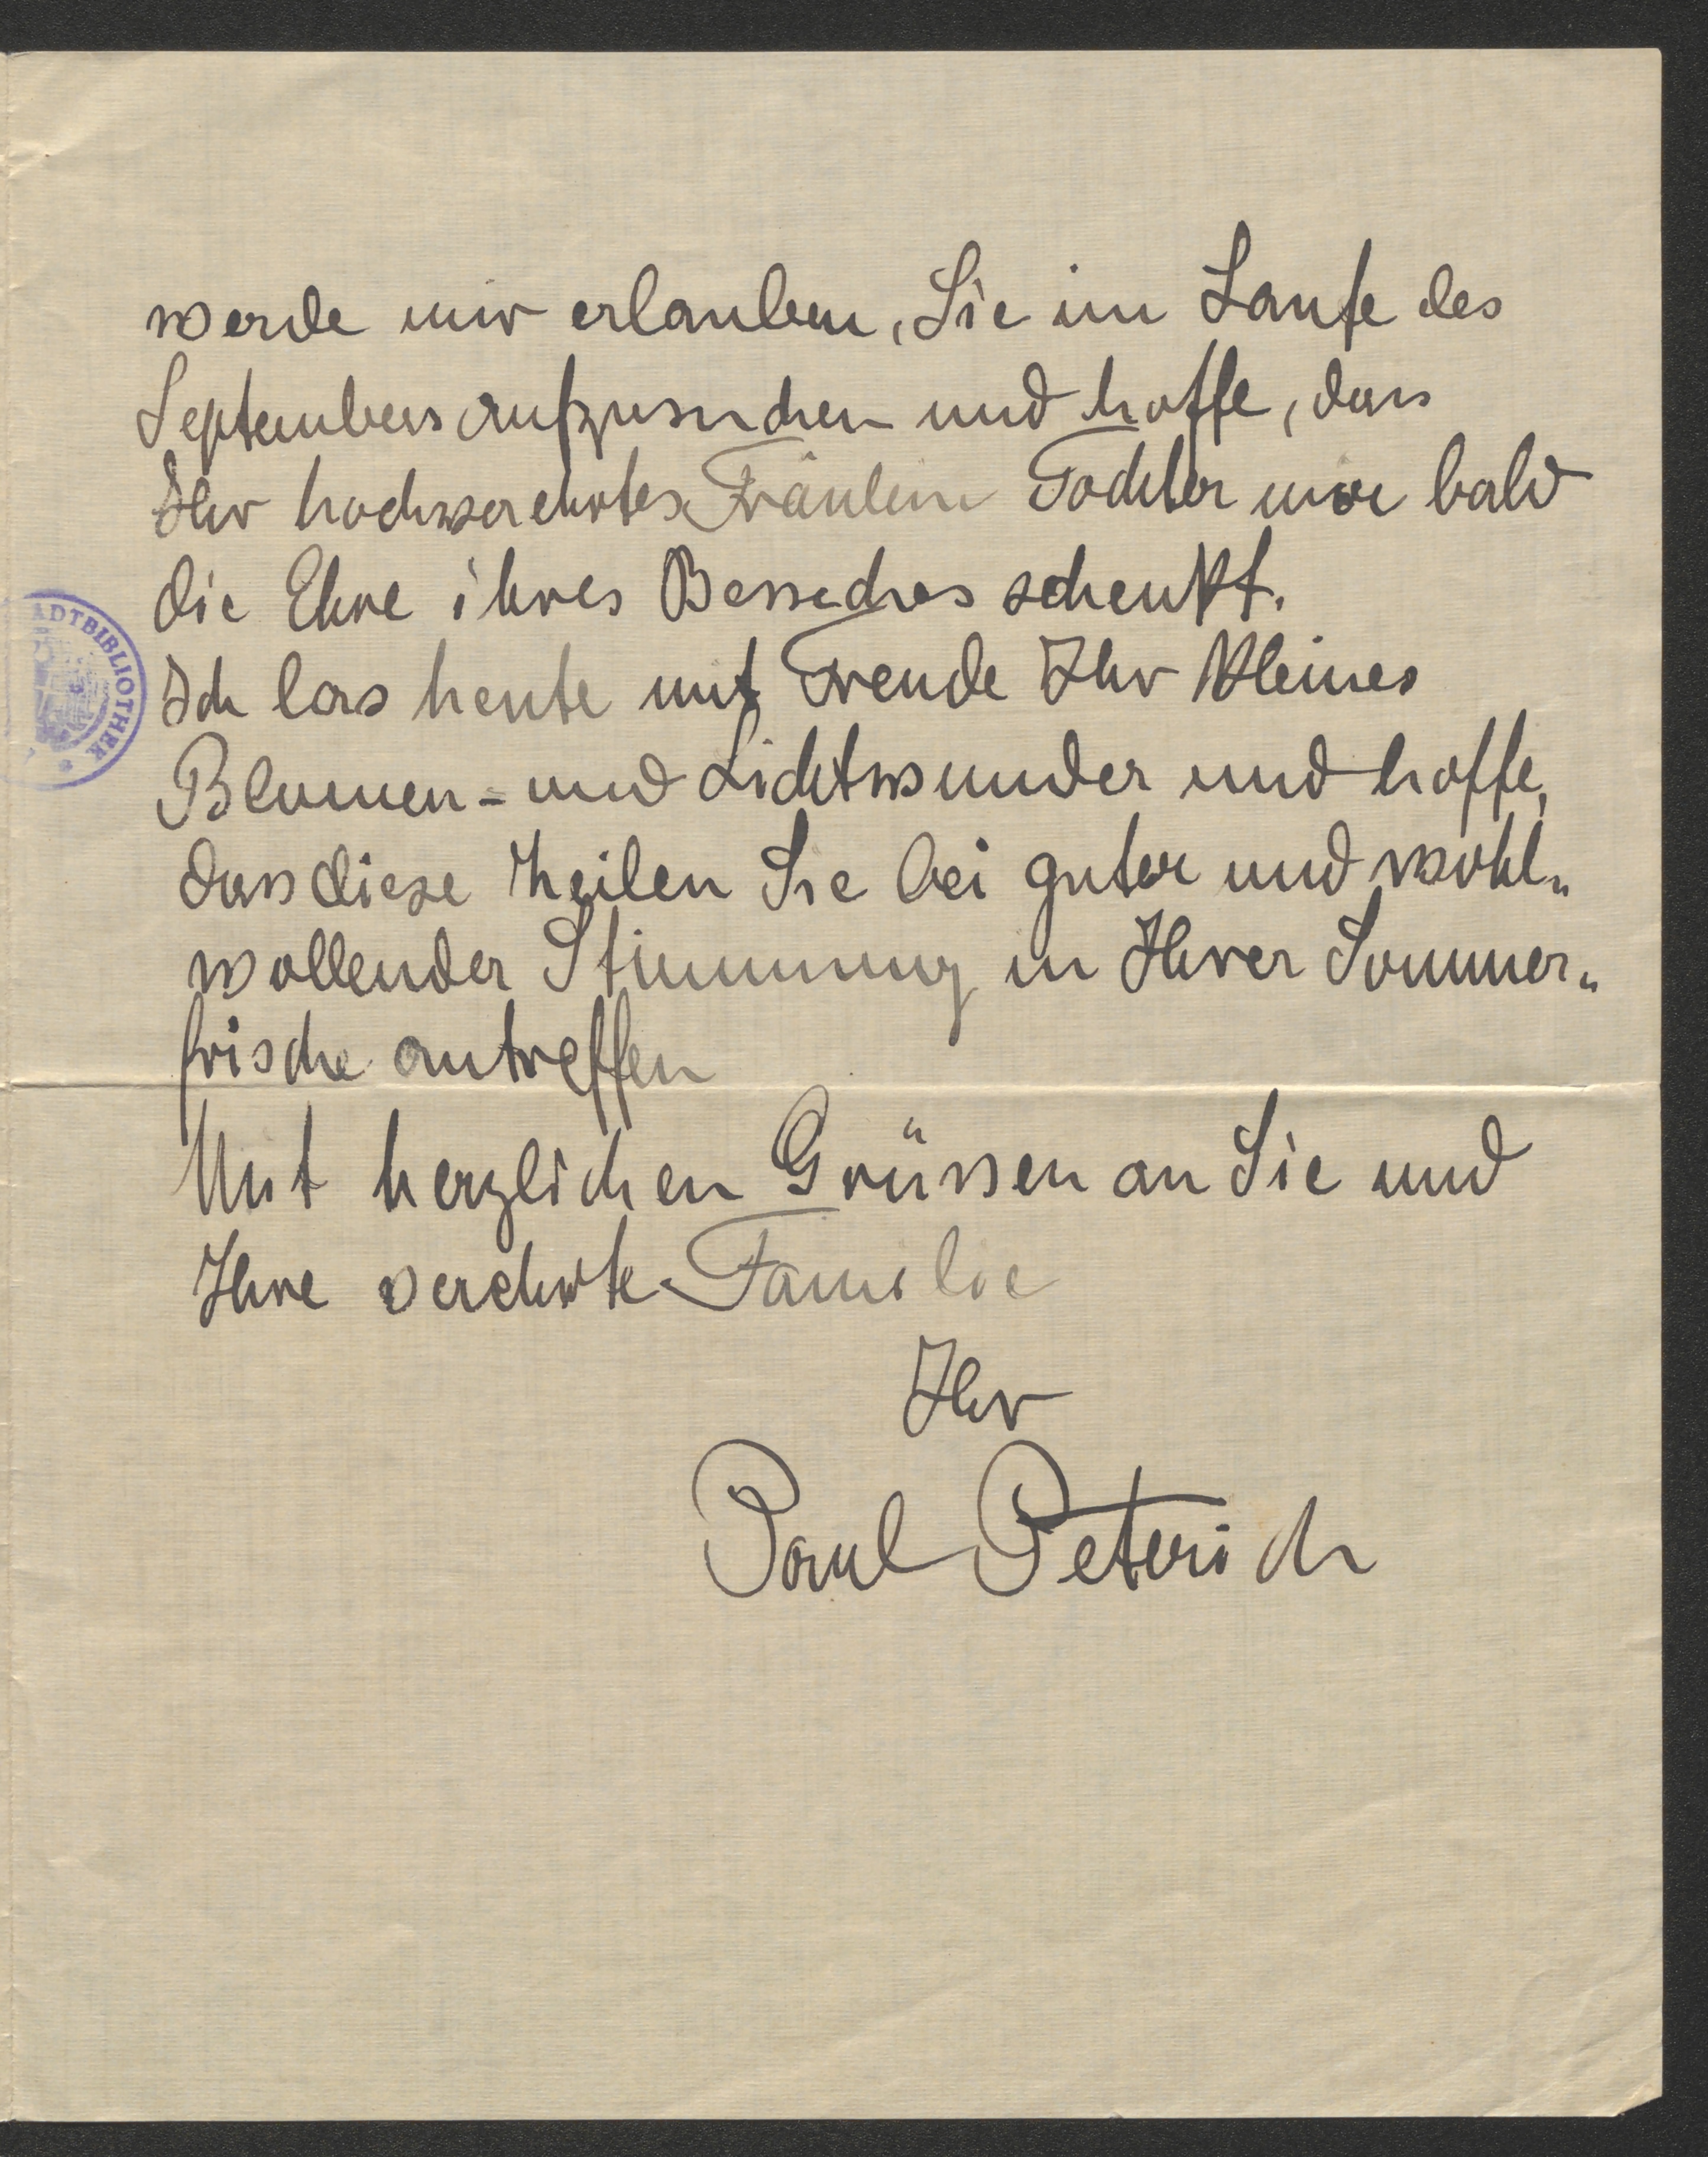 werde mir erlauben, Sie im Laufe des
Septembers aufzusuchen und hoffe, dass
Ihr hochverehrtes Fräulein Tochter mir bald
die Ehre ihres Besuches schenkt.
Ich las heute mit Freude Ihr kleines
Blumen- und Lichtwunder und hoffe,
dass diese Zeilen Sie bei guter und wohl„
wollender Stimmung in Ihrer Sommer„
frische antreffen
Mit herzlichen Grüssen an Sie und
Ihre verehrte Familie
Ihr
Paul Peterich
ADTBIBLIOTHEK